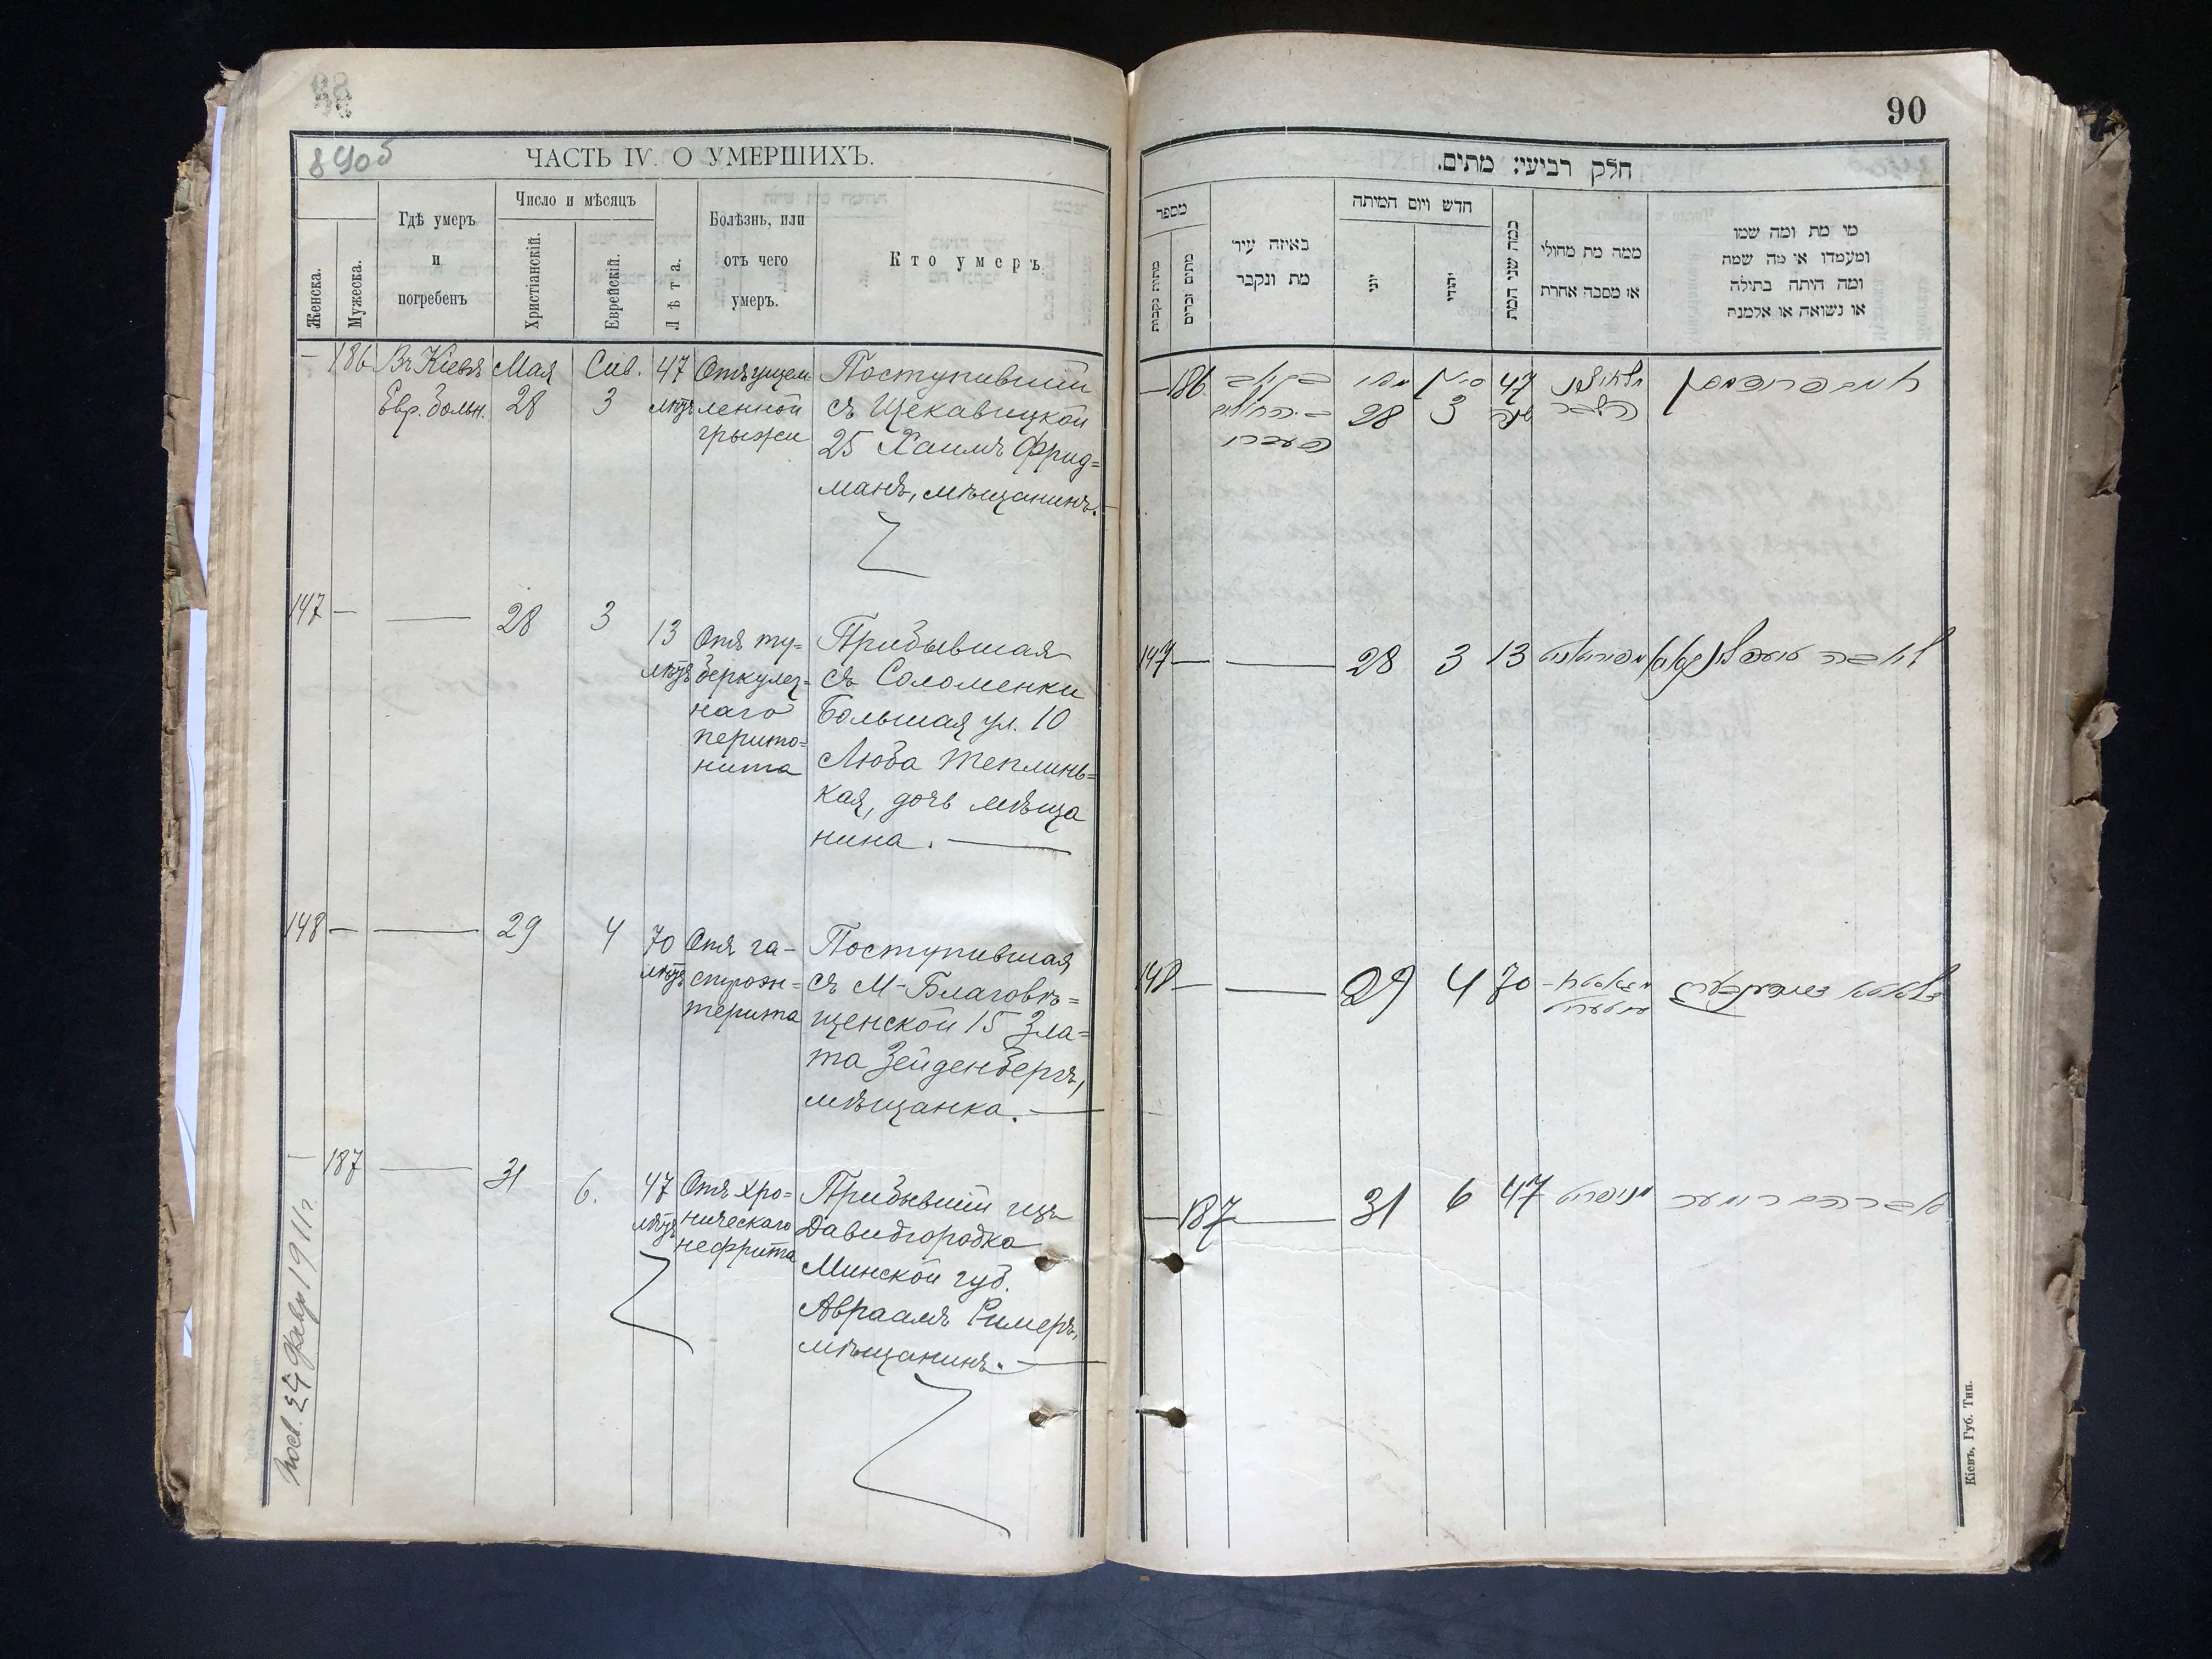 890б
ЧАСТЬ IV. О УМЕРШИХЪ.
Женска.
Мужеска.
Гдѣ умеръ
и
погребенъ
Число и мѣсяцъ
Христіанскій.
Еврейскій.
Лѣта.
Болѣзнь, или
отъ чего
умеръ.
Кто умеръ
—
186
Въ Кіевѣ
Евр. больн.
Мая
28
Сив.
3
47
лѣтъ
Отъ ущем-
ленной
грыжи
Поступившій
съ Щекавицкой
25 Хаимъ Фрид=
манъ, мѣщанинъ.
147
—
—
28
3
13
лѣтъ
Отъ ту-
беркулез=
наго
перито=
нита
Прибывшая
съ Соломенки
Большая ул. 10
Люба Теплинь=
кая, дочь мѣща
нина. —
148
—
—
29
4
70
лѣтъ
Отъ га-
строэн=
терита
Поступившая
съ М-Благовѣ=
щенской 15 Зла=
та Зейденбергъ,
мѣщанка. —
—
187
—
31
6.
47
лѣтъ
Отъ хро=
ническаго
нефрита
Прибывшій изъ
Давидгородка
Минской губ.
Авраамъ Римеръ,
мѣщанинъ. —
1911 г.
90
חלק רביעי: מתים.
מספר
מתות נקבות
מתים זכרים
באיזה עיר
מת ונקבר
חדש ויום המיתה
יוני
יהודי
כמה שני המת
ממה מת מחולי
או מסבה אחרת
מי מת ומה שמו
ומעמדו או מה שמה
ומה היתה בתילה
או נשואה או אלמנה
—
186
28
3
47
שנה
חיים פרידמאן
147
—
—
28
3
13
148
—
—
29
4
70
—
187
—
31
6
47
Кіевъ, Губ. Тип.